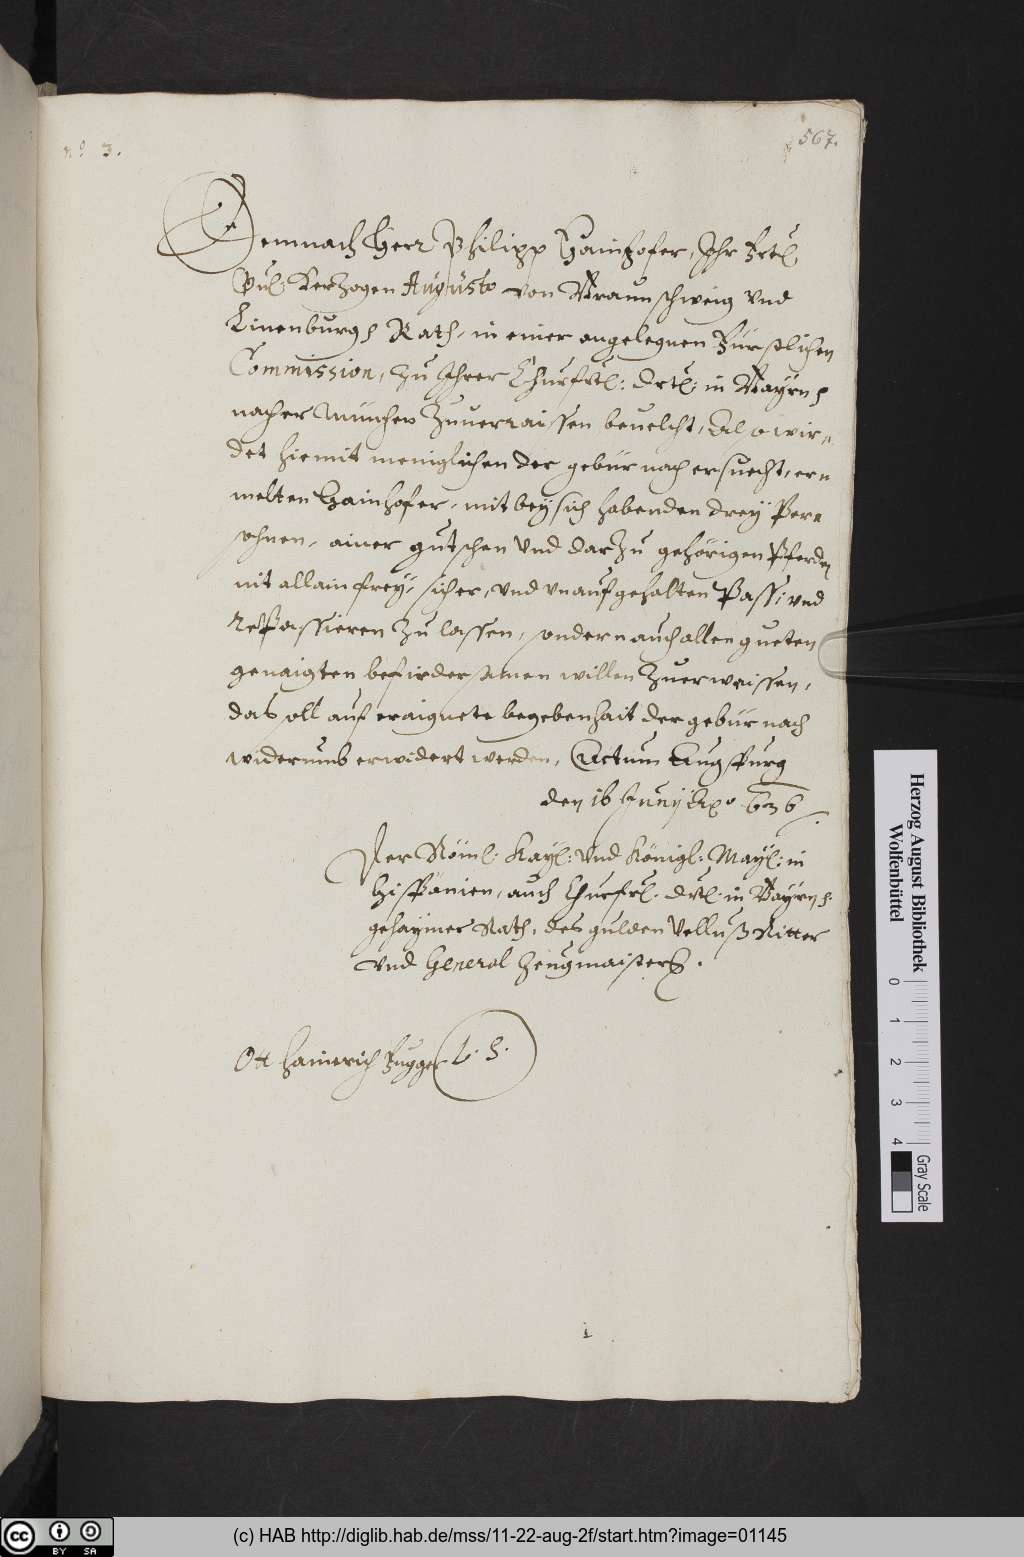 nº 3.
567.
Demnach Herr Philipp Hainhofer, Ihr Frtl.
Gn̄l. Herzogen Augusto von Braunschweig vnd
Linenburgs Rath, in einer angelegnen Fürstlichen
Commission, zu Ihrer Churfrtl: Drtl: in Bayrn ꝛ
nacher München zuuerraissen beuelcht, Also wir=
det hiemit meniglichen der gebür nach ersuecht, er=
melten Hainhofer, mit bey sich habenden drey Per=
sohnen, ainer gutschen vnd darzu gehörigen Pferden
nit allain frey, sicher, vnd vnaufgehalten Pass: vnd
rePassieren zu lassen, sondern auch allen gueten
genaigten befürdersamen willen zuerweissen,
das soll auf eraignete begebenhait der gebür nach
widerumb erwidert werden, Actum Augspurg
den 16 Junij Aõ 636
Der Röml: Kayl: vnd Königl: Mayl: in
Hispanien, auch Churfrl. Drtl. in Bayrn ꝛ.
gehaymer Rath, des gulden Velluß Ritter
vnd General Zeugmaister.
Ott Hainrich Fugger L. S.
1
Herzog August Bibliothek
Wolfenbüttel
0 1 2 3 4
Gray Scale
cc BY SA
(c) HAB http://diglib.hab.de/mss/11-22-aug-2f/start.htm?image=01145